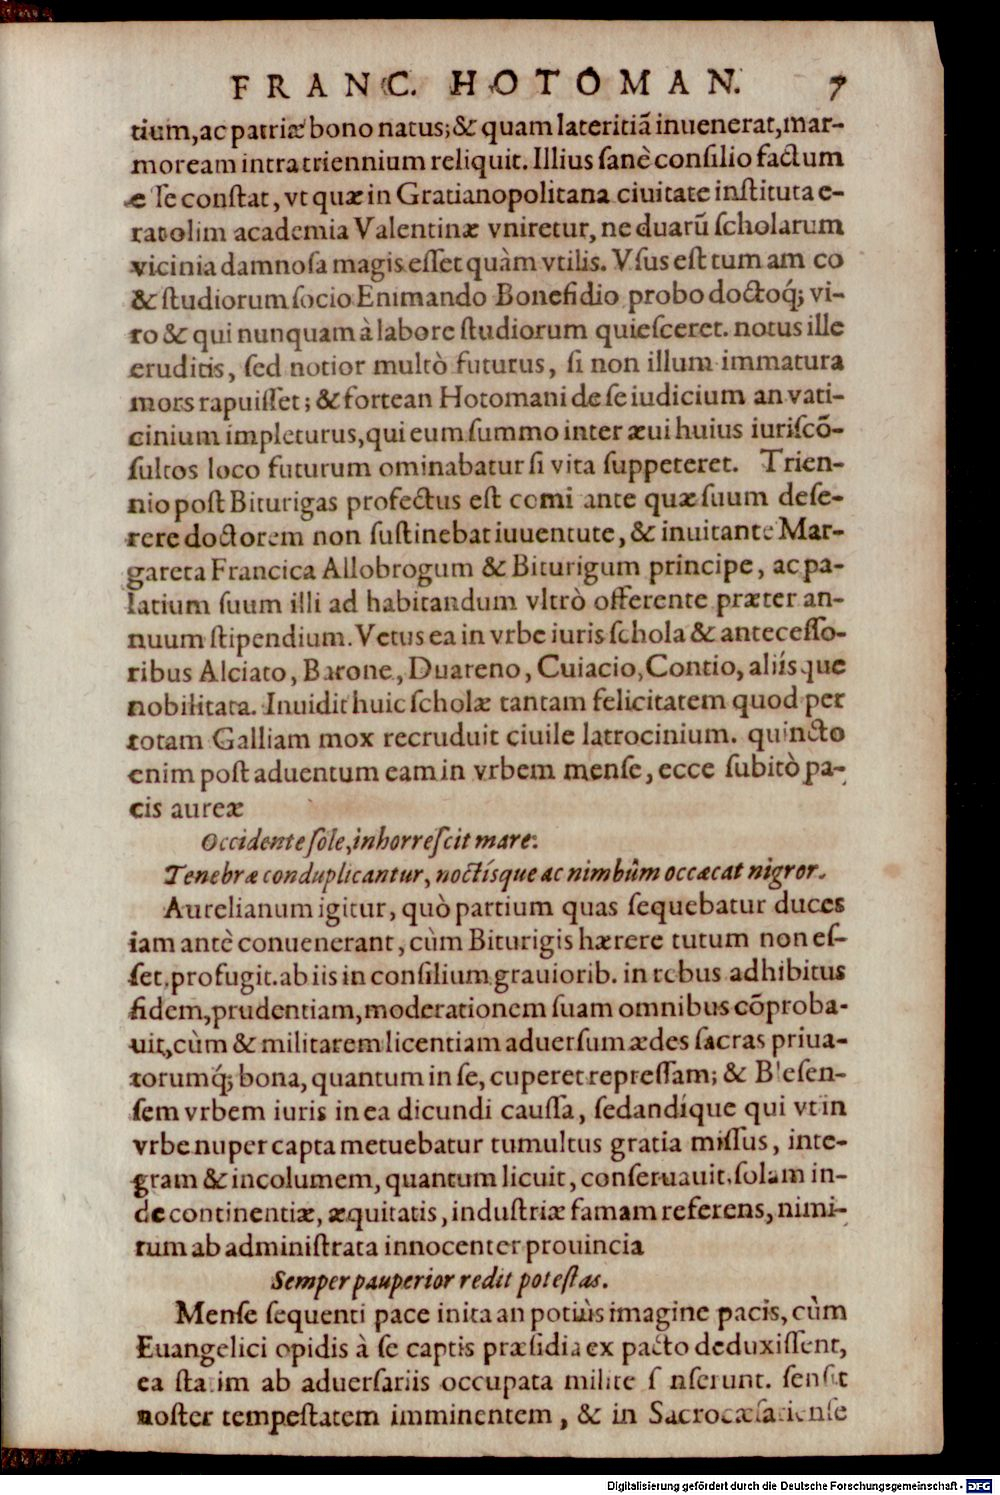 FRANC. HOTOMAN. 7
tium, ac patriæ bono natus; & quam lateritiã inuenerat, mar-
moream intra triennium reliquit. Illius sanè consilio factum
esse constat, vt quæ in Gratianopolitana ciuitate instituta e-
rat olim academia Valentinæ vniretur, ne duarũ scholarum
vicinia damnosa magis esset quàm vtilis. Vsus est tum amico
& studiorum socio Enimando Bonefidio probo doctoq́; vi-
ro & qui nunquam à labore studiorum quiesceret. notus ille
eruditis, sed notior multò futurus, si non illum immatura
mors rapuisset; & fortean Hotomani de se iudicium an vati-
cinium impleturus, qui eum summo inter æui huius iuriscõ-
sultos loco futurum ominabatur si vita suppeteret. Trien-
nio post Biturigas profectus est comitante quæ suum dese-
rere doctorem non sustinebat iuuentute, & inuitante Mar-
gareta Francica Allobrogum & Biturigum principe, ac pa-
latium suum illi ad habitandum vltrò offerente præter an-
nuum stipendium. Vetus ea in vrbe iuris schola & antecesso-
ribus Alciato, Barone, Duareno, Cuiacio, Contio, aliísque
nobilitata. Inuidit huic scholæ tantam felicitatem quod per
totam Galliam mox recruduit ciuile latrocinium. quincto
enim post aduentum eam in vrbem mense, ecce subitò pa-
cis aureæ
Occidente sole, inhorrescit mare:
Tenebræ conduplicantur, noctísque ac nimbûm occæcat nigror.
Aurelianum igitur, quò partium quas sequebatur duces
iam antè conuenerant, cùm Biturigis hærere tutum non es-
set, profugit. ab iis in consilium grauiorib. in rebus adhibitus
fidem, prudentiam, moderationem suam omnibus cõproba-
uit, cùm & militarem licentiam aduersum ædes sacras priua-
torumq́; bona, quantum in se, cuperet repressam; & Blesen-
sem vrbem iuris in ea dicundi caussa, sedandíque qui vt in
vrbe nuper capta metuebatur tumultus gratia missus, inte-
gram & incolumem, quantum licuit, conseruauit. solam in-
de continentiæ, æquitatis, industriæ famam referens, nimi-
rum ab administrata innocenter prouincia
Semper pauperior redit potestas.
Mense sequenti pace inita an potiùs imagine pacis, cùm
Euangelici opidis à se captis præsidia ex pacto deduxissent,
ea statim ab aduersariis occupata milite sunserunt. sensit
noster tempestatem imminentem, & in Sacrocæsariense
Digitalisierung gefördert durch die Deutsche Forschungsgemeinschaft - DFG